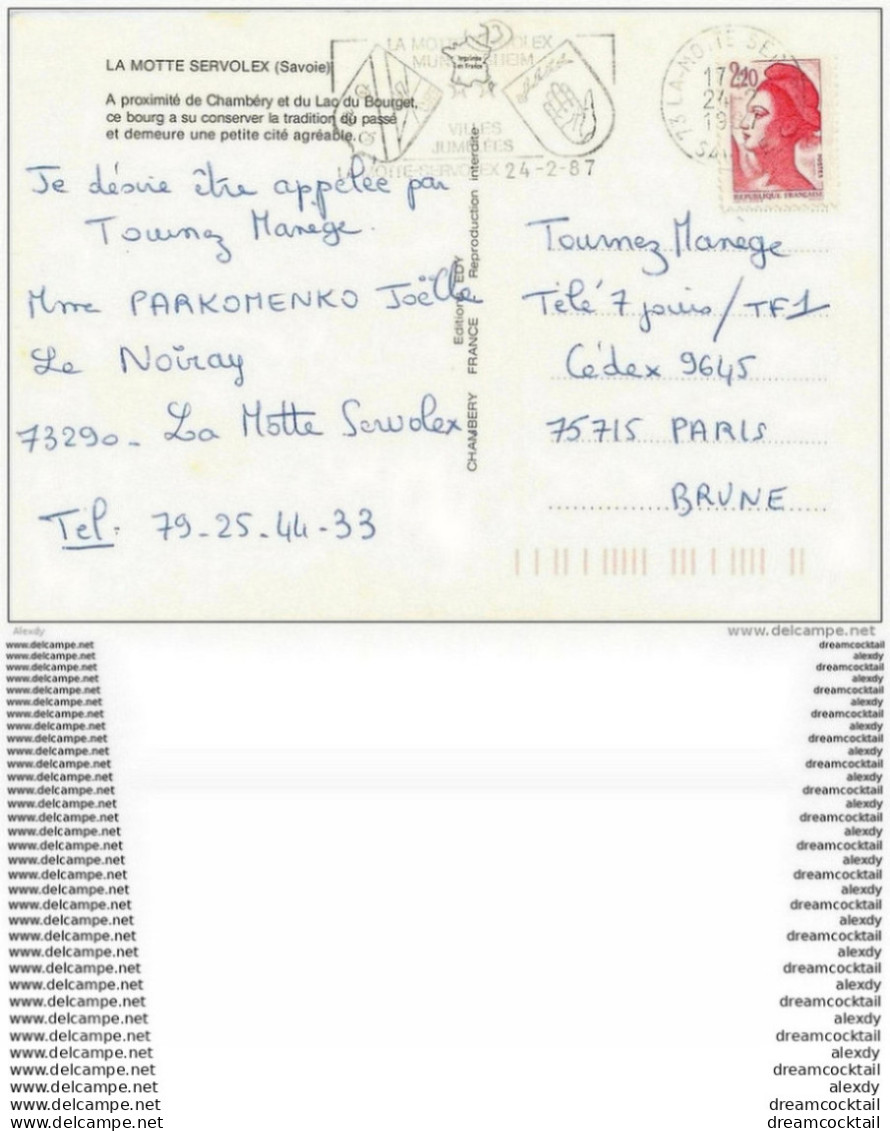 LA MOTTE SERVOLEX (Savoie)
A proximité de Chambéry et du Lac du Bourget,
ce bourg a su conserver la tradition du passé
et demeure une petite cité agréable.
VILLES
JUMELÉES
LA MOTTE-SERVOLEX 24-2-87
73 LA-MOTTE SER
17
24-2
19
2,20
REPUBLIQUE FRANÇAISE
POSTES
Imprimée
en France
Je désire être appelée par
Tournez Manège.
Mme PARKOMENKO Joëlle
Le Noiray
73290 - La Motte Servolex
Tél. 79-25-44-33
Editions EDY
CHAMBERY FRANCE Reproduction interdite
Tournez Manège
Télé 7 jours / TF1
Cédex 9645
75715 PARIS
BRUNE
Alexdy
www.delcampe.net
www.delcampe.net
www.delcampe.net
www.delcampe.net
www.delcampe.net
www.delcampe.net
www.delcampe.net
www.delcampe.net
www.delcampe.net
www.delcampe.net
www.delcampe.net
www.delcampe.net
www.delcampe.net
www.delcampe.net
www.delcampe.net
www.delcampe.net
www.delcampe.net
www.delcampe.net
www.delcampe.net
www.delcampe.net
www.delcampe.net
www.delcampe.net
www.delcampe.net
www.delcampe.net
www.delcampe.net
www.delcampe.net
www.delcampe.net
www.delcampe.net
www.delcampe.net
www.delcampe.net
www.delcampe.net
www.delcampe.net
www.delcampe.net
www.delcampe.net
dreamcocktail
alexdy
dreamcocktail
alexdy
dreamcocktail
alexdy
dreamcocktail
alexdy
dreamcocktail
alexdy
dreamcocktail
alexdy
dreamcocktail
alexdy
dreamcocktail
alexdy
dreamcocktail
alexdy
dreamcocktail
alexdy
dreamcocktail
alexdy
dreamcocktail
alexdy
dreamcocktail
alexdy
dreamcocktail
alexdy
dreamcocktail
alexdy
dreamcocktail
alexdy
dreamcocktail
dreamcocktail